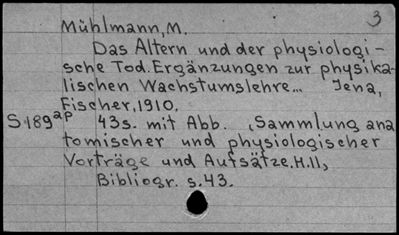 3
Mühlmann, M.
Das Altern und der physiologi-
sche Tod. Ergänzungen zur physika-
lischen Wachstumslehre... Jena,
Fischer, 1910.
S 189ap 43s. mit Abb. (Sammlung ana
tomischer und physiologischer
Vorträge und Aufsätze. H.11,
Bibliogr. s. 43.